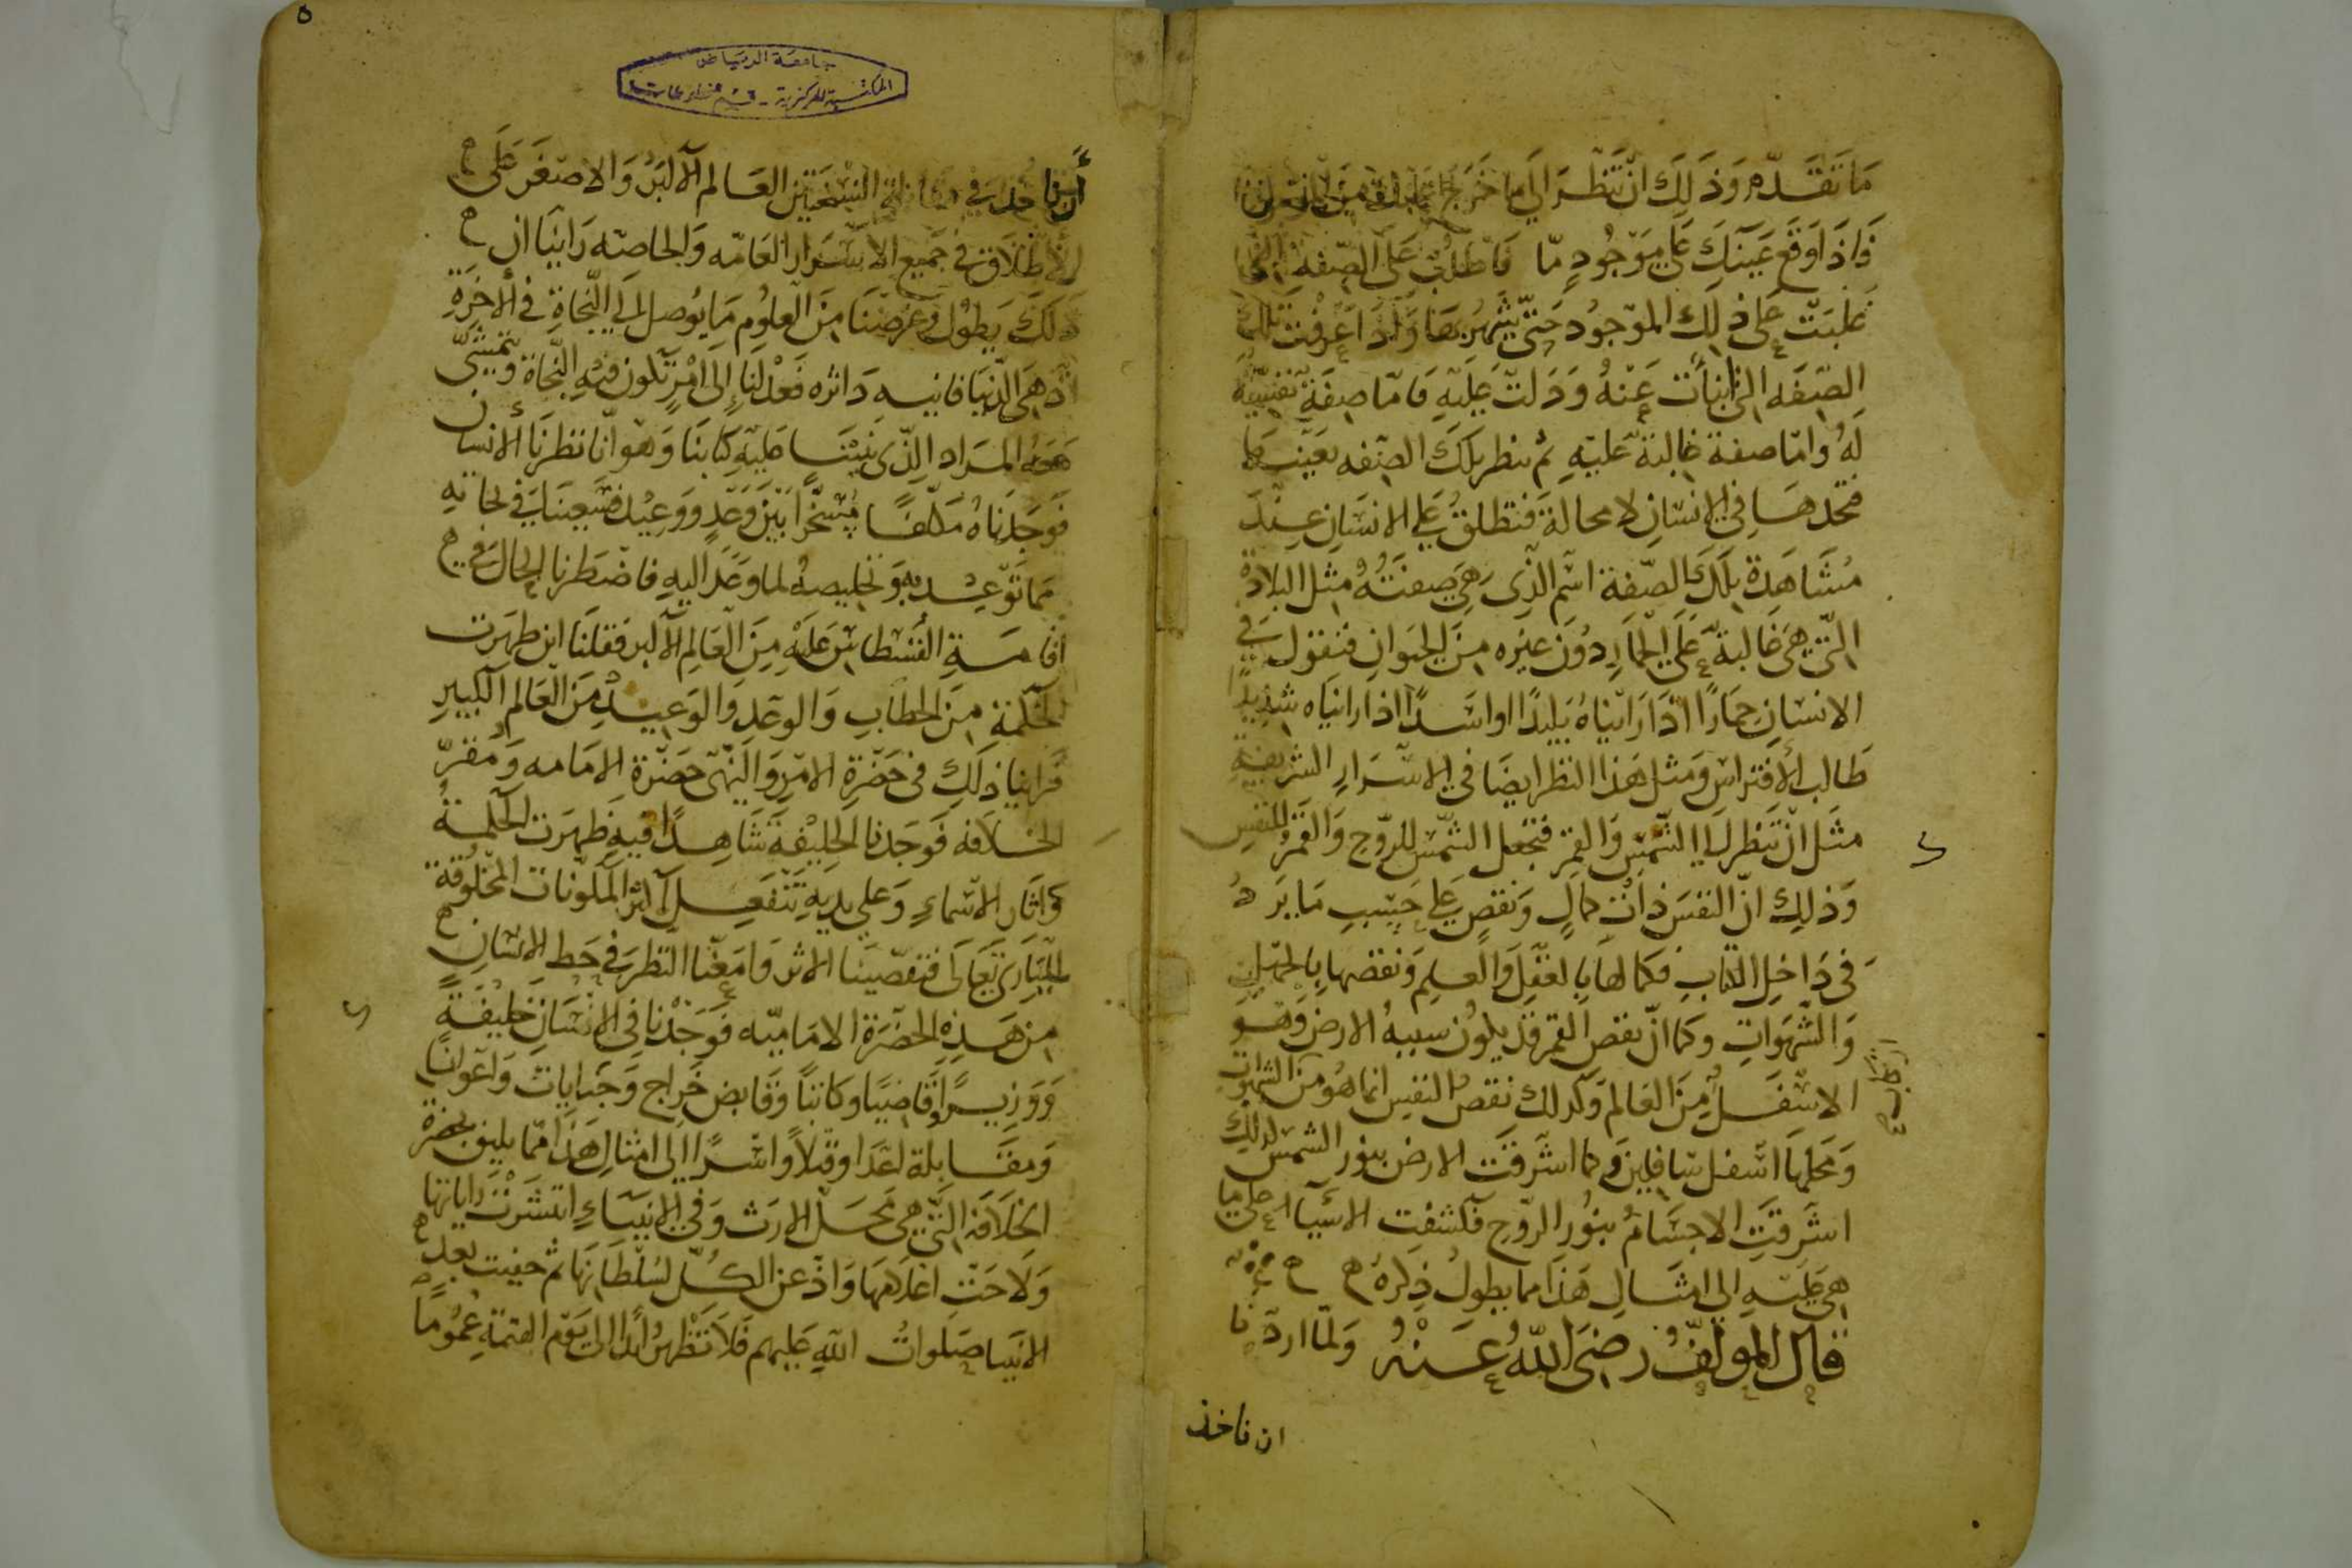 ما تقدم وذلك ان تنظر الى ما خرج
فاذا وقع عينك على موجود ما فاطلب على الصفة التي
غلبت على ذلك الموجود حتى يشهر بها واذا عرفت تلك
الصفه التي انبأت عنه ودلت عليه فاما صفة نفسية
له واما صفة غالبة عليه ثم تنظر تلك الصفه بعينها
فتجدها في الانسان لا محالة فتطلق على الانسان عند
مشاهدة تلك الصفة اسم الذي هي صفته مثل البلادة
التي هي غالبة على الحمار دون غيره من الحيوان فتقول في
الانسان حمارا اذا رايناه بليدا او اسدا اذا رايناه شديدا
طالب الافتراس ومثل هذا النظر ايضا في الاسرار الشريفة
مثل ان تنظر الى الشمس والقمر فتجعل الشمس للروح والقمر للنفس
وذلك ان النفس ذات كمال ونقص على حسب ما يرد
في داخل الكتاب فكمالها بالعقل والعلم ونقصها بالجهل
والشهوات وكما ان نقص القمر قد يكون سببه الارض وهو
الاسفل من العالم وكذلك نقص النفس انما هو من الشهوات
ومحلها اسفل سافلين وكما اشرقت الارض بنور الشمس كذلك
اشرقت الاجسام بنور الروح فكشفت الاشياء على ما
هي عليه الى امثال هذا مما يطول ذكره
قال المولف رضي الله عنه ولما اردنا
ان ناخذ
٥
جامعة الرياض
المكتبة المركزية - قسم المخطوطات
ان ناخذ في مقابلة النسختين العالم الاكبر والاصغر على
الاطلاق في جميع الاسرار العامه والخاصه راينا ان
ذلك يطول وغرضنا من العلوم ما يوصل الى النجاة في الاخرة
اذ هي الدنيا فانيه داثره فعدلنا الى امر تكون فيه النجاة ويتمشى
معه المراد الذي بنينا عليه كتابنا وهو انا نظرنا الانسان
فوجدناه مكلفا مسخرا بين وعد ووعيد فسعينا في نجاته
مما توعد به وتخليصه لما وعد اليه فاضطرنا الحال في
اقامة القسطاس عليه من العالم الاكبر فقلنا اين ظهرت
الحكمة من الخطاب والوعد والوعيد من العالم الكبير
فراينا ذلك في حضرة الامر والنهي حضرة الامامه ومقر
الخلافه فوجدنا الخليفة شاهدا فيه ظهرت الحكمة
واثار الاسماء وعلى يديه تنفعل اكثر المكونات المخلوقة
للباري تعالى فتقصينا الاثر وامعنا النظر في حظ الانسان
من هذه الحضرة الاماميه فوجدنا في الانسان خليفة
ووزيرا وقاضيا وكاتبا وقابض خراج وجبايات واعوانا
ومقابلة اعدا وقتلا واسرا الى امثال هذا مما يليق بحضرة
الخلافة التي هي محل الارث وفي الانبياء انتشرت راياتها
ولاحت اعلامها واذعن الكل لسلطانها ثم خفيت بعد
الانبيا صلوات الله عليهم فلا تظهر ابدا الى يوم القيمة عموما